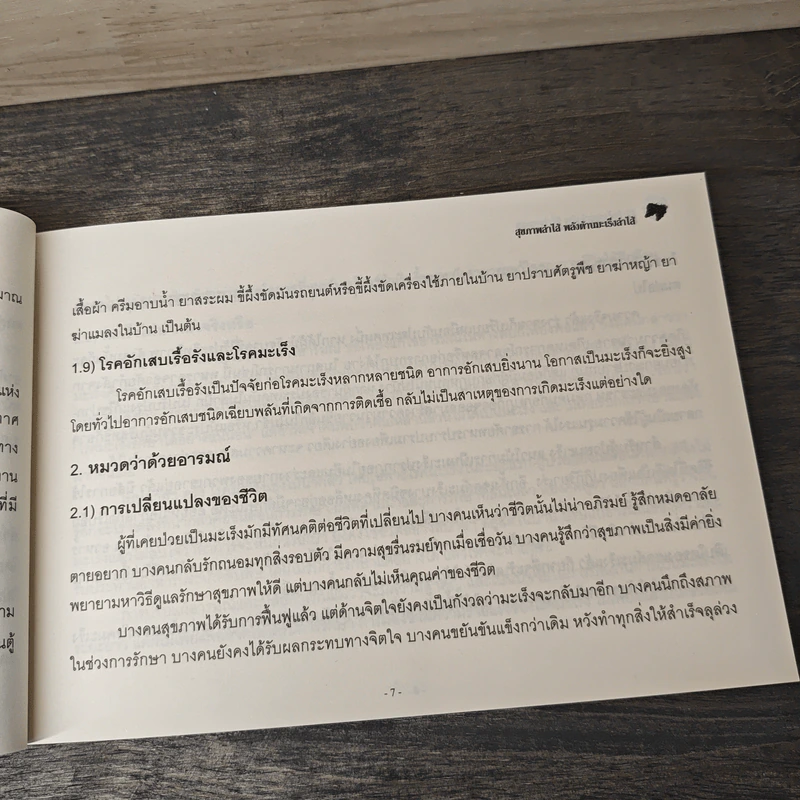 สุขภาพลำไส้ พลังต้านมะเร็งลำไส้
เสื้อผ้า ครีมอาบน้ำ ยาสระผม ขี้ผึ้งขัดมันรถยนต์หรือขี้ผึ้งขัดเครื่องใช้ภายในบ้าน ยาปราบศัตรูพืช ยาฆ่าหญ้า ยา
ฆ่าแมลงในบ้าน เป็นต้น
1.9) โรคอักเสบเรื้อรังและโรคมะเร็ง
โรคอักเสบเรื้อรังเป็นปัจจัยก่อโรคมะเร็งหลากหลายชนิด อาการอักเสบยิ่งนาน โอกาสเป็นมะเร็งก็จะยิ่งสูง
โดยทั่วไปอาการอักเสบชนิดเฉียบพลันที่เกิดจากการติดเชื้อ กลับไม่เป็นสาเหตุของการเกิดมะเร็งแต่อย่างใด
2. หมวดว่าด้วยอารมณ์
2.1) การเปลี่ยนแปลงของชีวิต
ผู้ที่เคยป่วยเป็นมะเร็งมักมีทัศนคติต่อชีวิตที่เปลี่ยนไป บางคนเห็นว่าชีวิตนั้นไม่น่าอภิรมย์ รู้สึกหมดอาลัย
ตายอยาก บางคนกลับรักถนอมทุกสิ่งรอบตัว มีความสุขรื่นรมย์ทุกเมื่อเชื่อวัน บางคนรู้สึกว่าสุขภาพเป็นสิ่งมีค่ายิ่ง
พยายามหาวิธีดูแลรักษาสุขภาพให้ดี แต่บางคนกลับไม่เห็นคุณค่าของชีวิต
บางคนสุขภาพได้รับการฟื้นฟูแล้ว แต่ด้านจิตใจยังคงเป็นกังวลว่ามะเร็งจะกลับมาอีก บางคนนึกถึงสภาพ
ในช่วงการรักษา บางคนยังคงได้รับผลกระทบทางจิตใจ บางคนขยันขันแข็งกว่าเดิม หวังทำทุกสิ่งให้สำเร็จลุล่วง
- 7 -